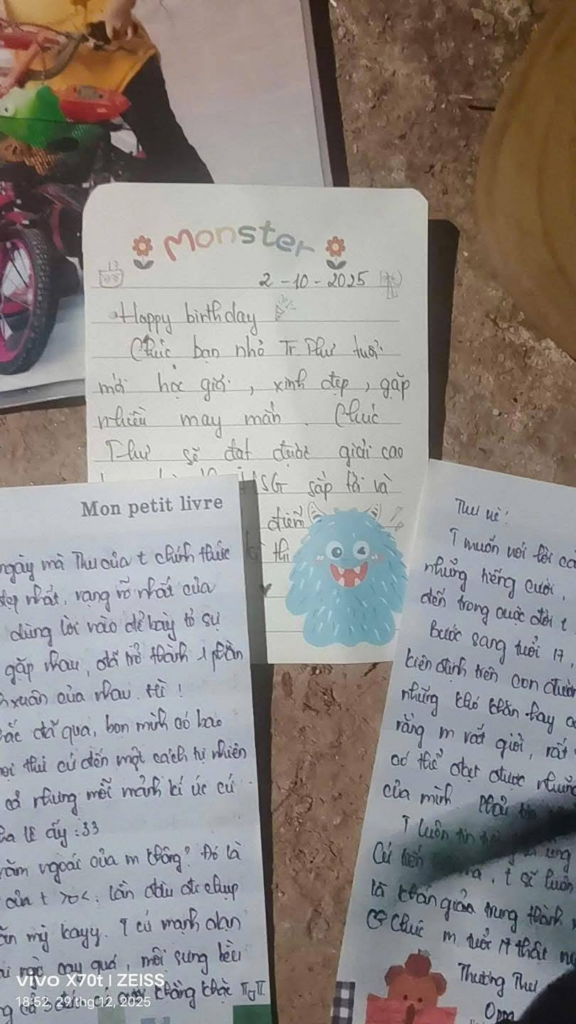 Monster
2-10-2025
Happy birthday
Chúc bạn nhỏ Tr.Thư tuổi
mới học giỏi, xinh đẹp, gặp
nhiều may mắn. Chúc
Thư sẽ đạt được giải cao
HSG sắp tới và
điểm
kì thi
Mon petit livre
ngày mà Thư của t chính thức
đẹp nhất, rạng rỡ nhất của
dùng lời nào để bày tỏ sự
gặp nhau, đã trở thành 1 phần
xuân của nhau. Hì!
đã qua, bọn mình có bao
thứ cứ đến một cách tự nhiên
cả nhưng mỗi mảnh kí ức cứ
lẽ ấy :33
năm ngoái của m không? Đó là
của t >o<. lần đầu đc chụp
mỹ kayy. T cứ mạnh dạn
quá, môi sưng bều
khặc TT
Thư nè!
T muốn nói lời
những tiếng cười,
đến trong cuộc đời t
Bước sang tuổi 17,
kiên định trên con đường
những khó khăn hay
rằng m rất giỏi, rất
có thể đạt được những
của mình. Phải
T luôn tin
Cứ tiến, t sẽ luôn
là khán giả trung thành
Chúc m tuổi 17 thật
Thương Thư
Oppa
vivo X70t | ZEISS
18:52, 29 thg 12, 2025